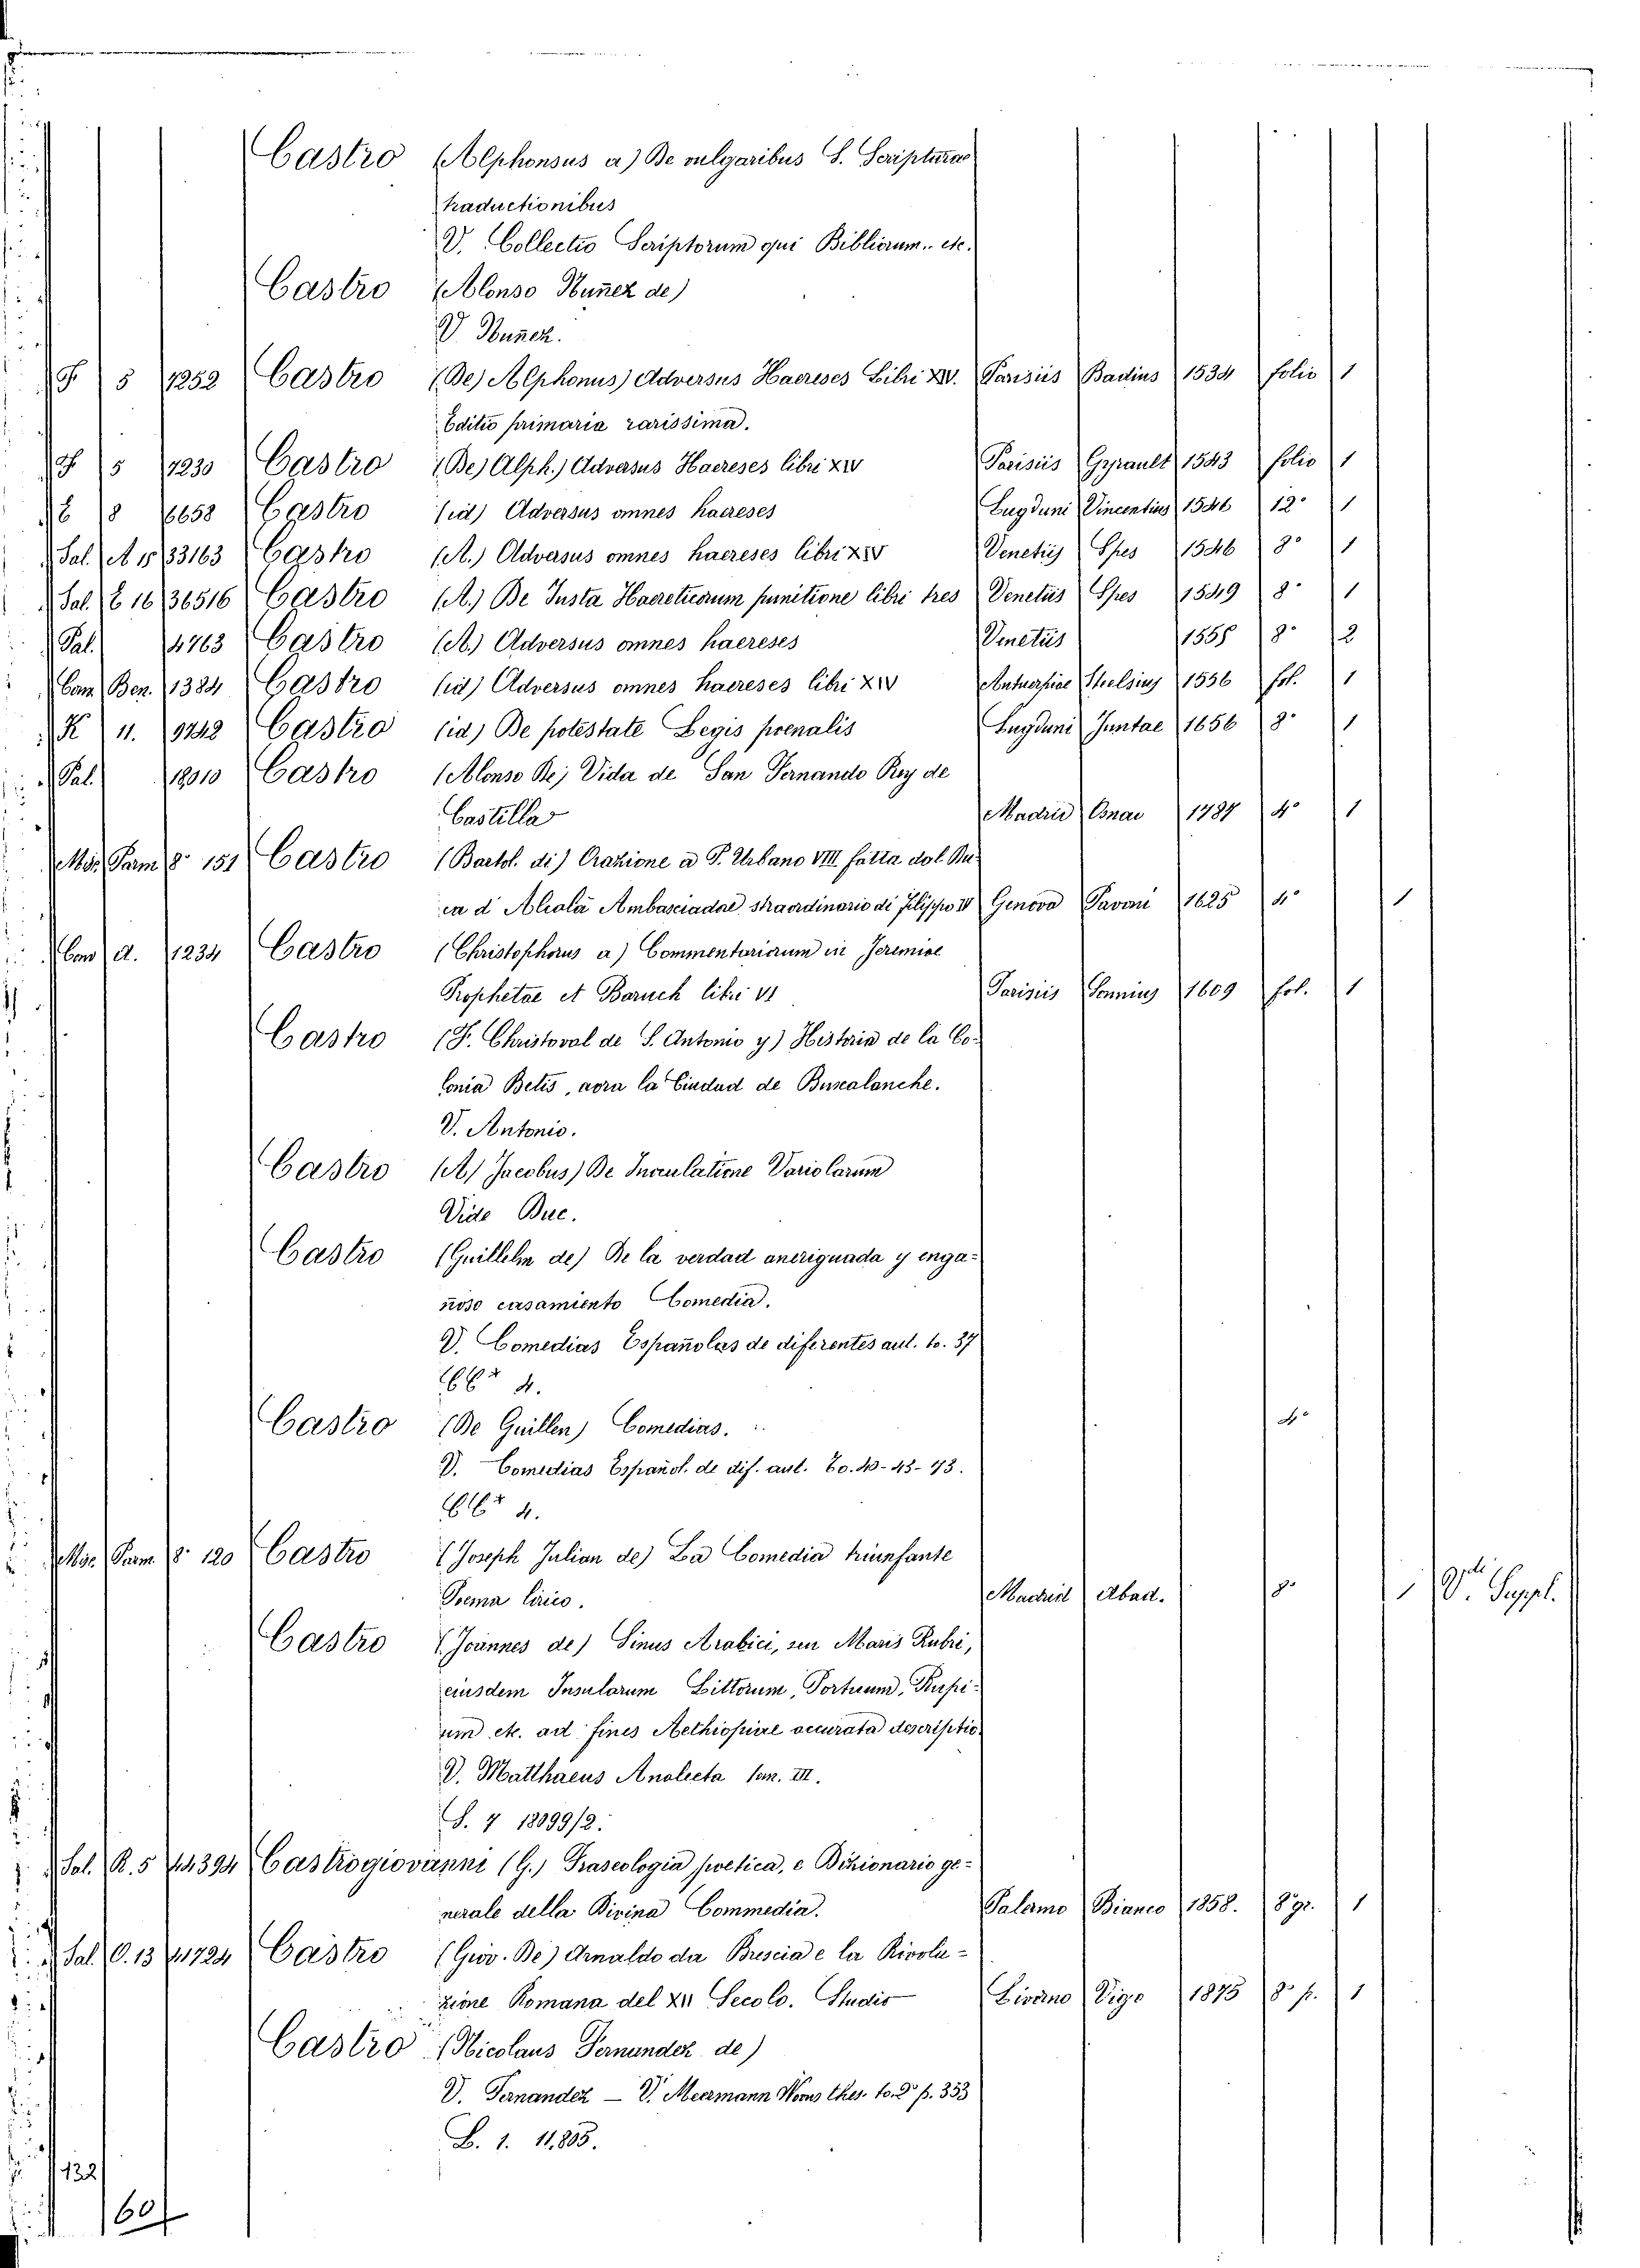 Castro (Alphonsus a) De vulgaribus S. Scripturae
traductionibus
V. Collectio Scriptorum qui Bibliorum.. etc.
Castro (Alonso Nuñez de)
V. Nuñez.
F 5 1252 Castro (De) Alphonus) Adversus Haereses Libri XIV. Parisiis Badius 1534 folio 1
Editio primaria rarissima.
F 5 1230 Castro (De) Alph.) Adversus Haereses libri XIV Parisiis Gyrault 1543 folio 1
8 6658 Castro (id) Adversus omnes haereses Lugduni Vincentius 1546 12° 1
Sal. A 15 33163 Castro (A.) Adversus omnes haereses libri XIV Venetiis Spes 1546 8° 1
Sal. E 16 36516 Castro (A.) De Justa Haereticorum punitione libri tres Venetiis Spes 1549 8° 1
Pal. 4763 Castro (A.) Adversus omnes haereses Venetiis 1555 8° 2
Cam Ben. 1384 Castro (id) Adversus omnes haereses libri XIV Antuerpiae Steelsius 1556 fol. 1
K 11. 9742 Castro (id) De potestate Legis poenalis Lugduni Juntae 1656 8° 1
Pal. 18010 Castro (Alonso De) Vida de San Fernando Rey de
Castilla Madrid Asnar 1787 4° 1
Misc. Parm 8° 151 Castro (Bartol. di) Orazione a P. Urbano VIII fatta dol Du-
ca d'Alcalà Ambasciadore straordinario di Filippo IV Genova Pavoni 1625 4° 1
Cam a. 1234 Castro (Christophorus a) Commentariorum in Jeremiae
Prophetae et Baruch libri VI Parisiis Sonnius 1609 fol. 1
Castro (F. Christoval de S. Antonio y) Historia de la Co-
lonia Betis, aora la Ciudad de Buxalanche.
V. Antonio.
Castro (A) Jacobus) De Inoculatione Variolarum
Vide Buc.
Castro (Guillelm de) De la verdad aneriguada y enga-
ñoso casamiento Comedia.
V. Comedias Españolas de diferentes aut. to. 37
CC* 4.
Castro (De Guillen) Comedias. 4°
V. Comedias Español. de dif. aut. To. 40-43-73.
CC* 4.
Misc. Parm. 8° 120 Castro (Joseph Julian de) La Comedia triunfante
Poema lirico. Madrid Abad. 8° 1 V. Suppl.
Castro (Joannes de) Sinus Arabici, seu Maris Rubri,
eiusdem Insularum Littorum, Portuum, Rupi-
um etc. ad fines Aethiopiae accurata descriptio
V. Matthaeus Analecta tom. III.
S. 7 18099/2.
Sal. R. 5 44394 Castrogiovanni (G.) Fraseologia poetica, e Dizionario ge-
nerale della Divina Commedia. Palermo Bianco 1858. 8° gr. 1
Sal. O. 13 41724 Castro (Giov. De) Arnaldo da Brescia e la Rivolu-
zione Romana del XII Secolo. Studio Livorno Vigo 1875 8° p. 1
Castro (Nicolaus Fernandez de)
V. Fernandez — V. Meermann Novus thes. to. 2° p. 353
L. 1. 11,805.
132
60